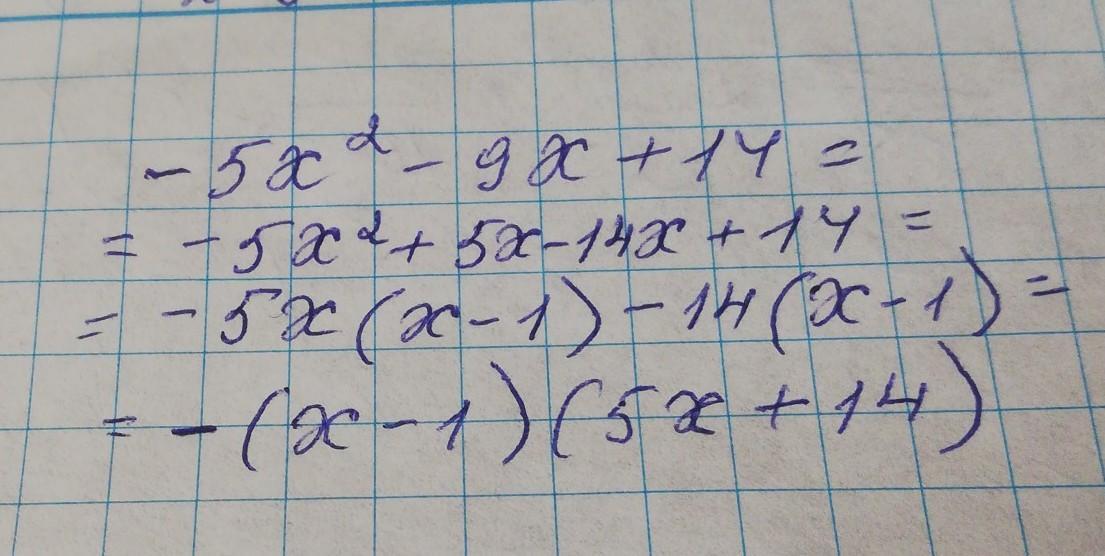 -5x² - 9x + 14 =
= -5x² + 5x - 14x + 14 =
= -5x(x - 1) - 14(x - 1) =
= -(x - 1)(5x + 14)